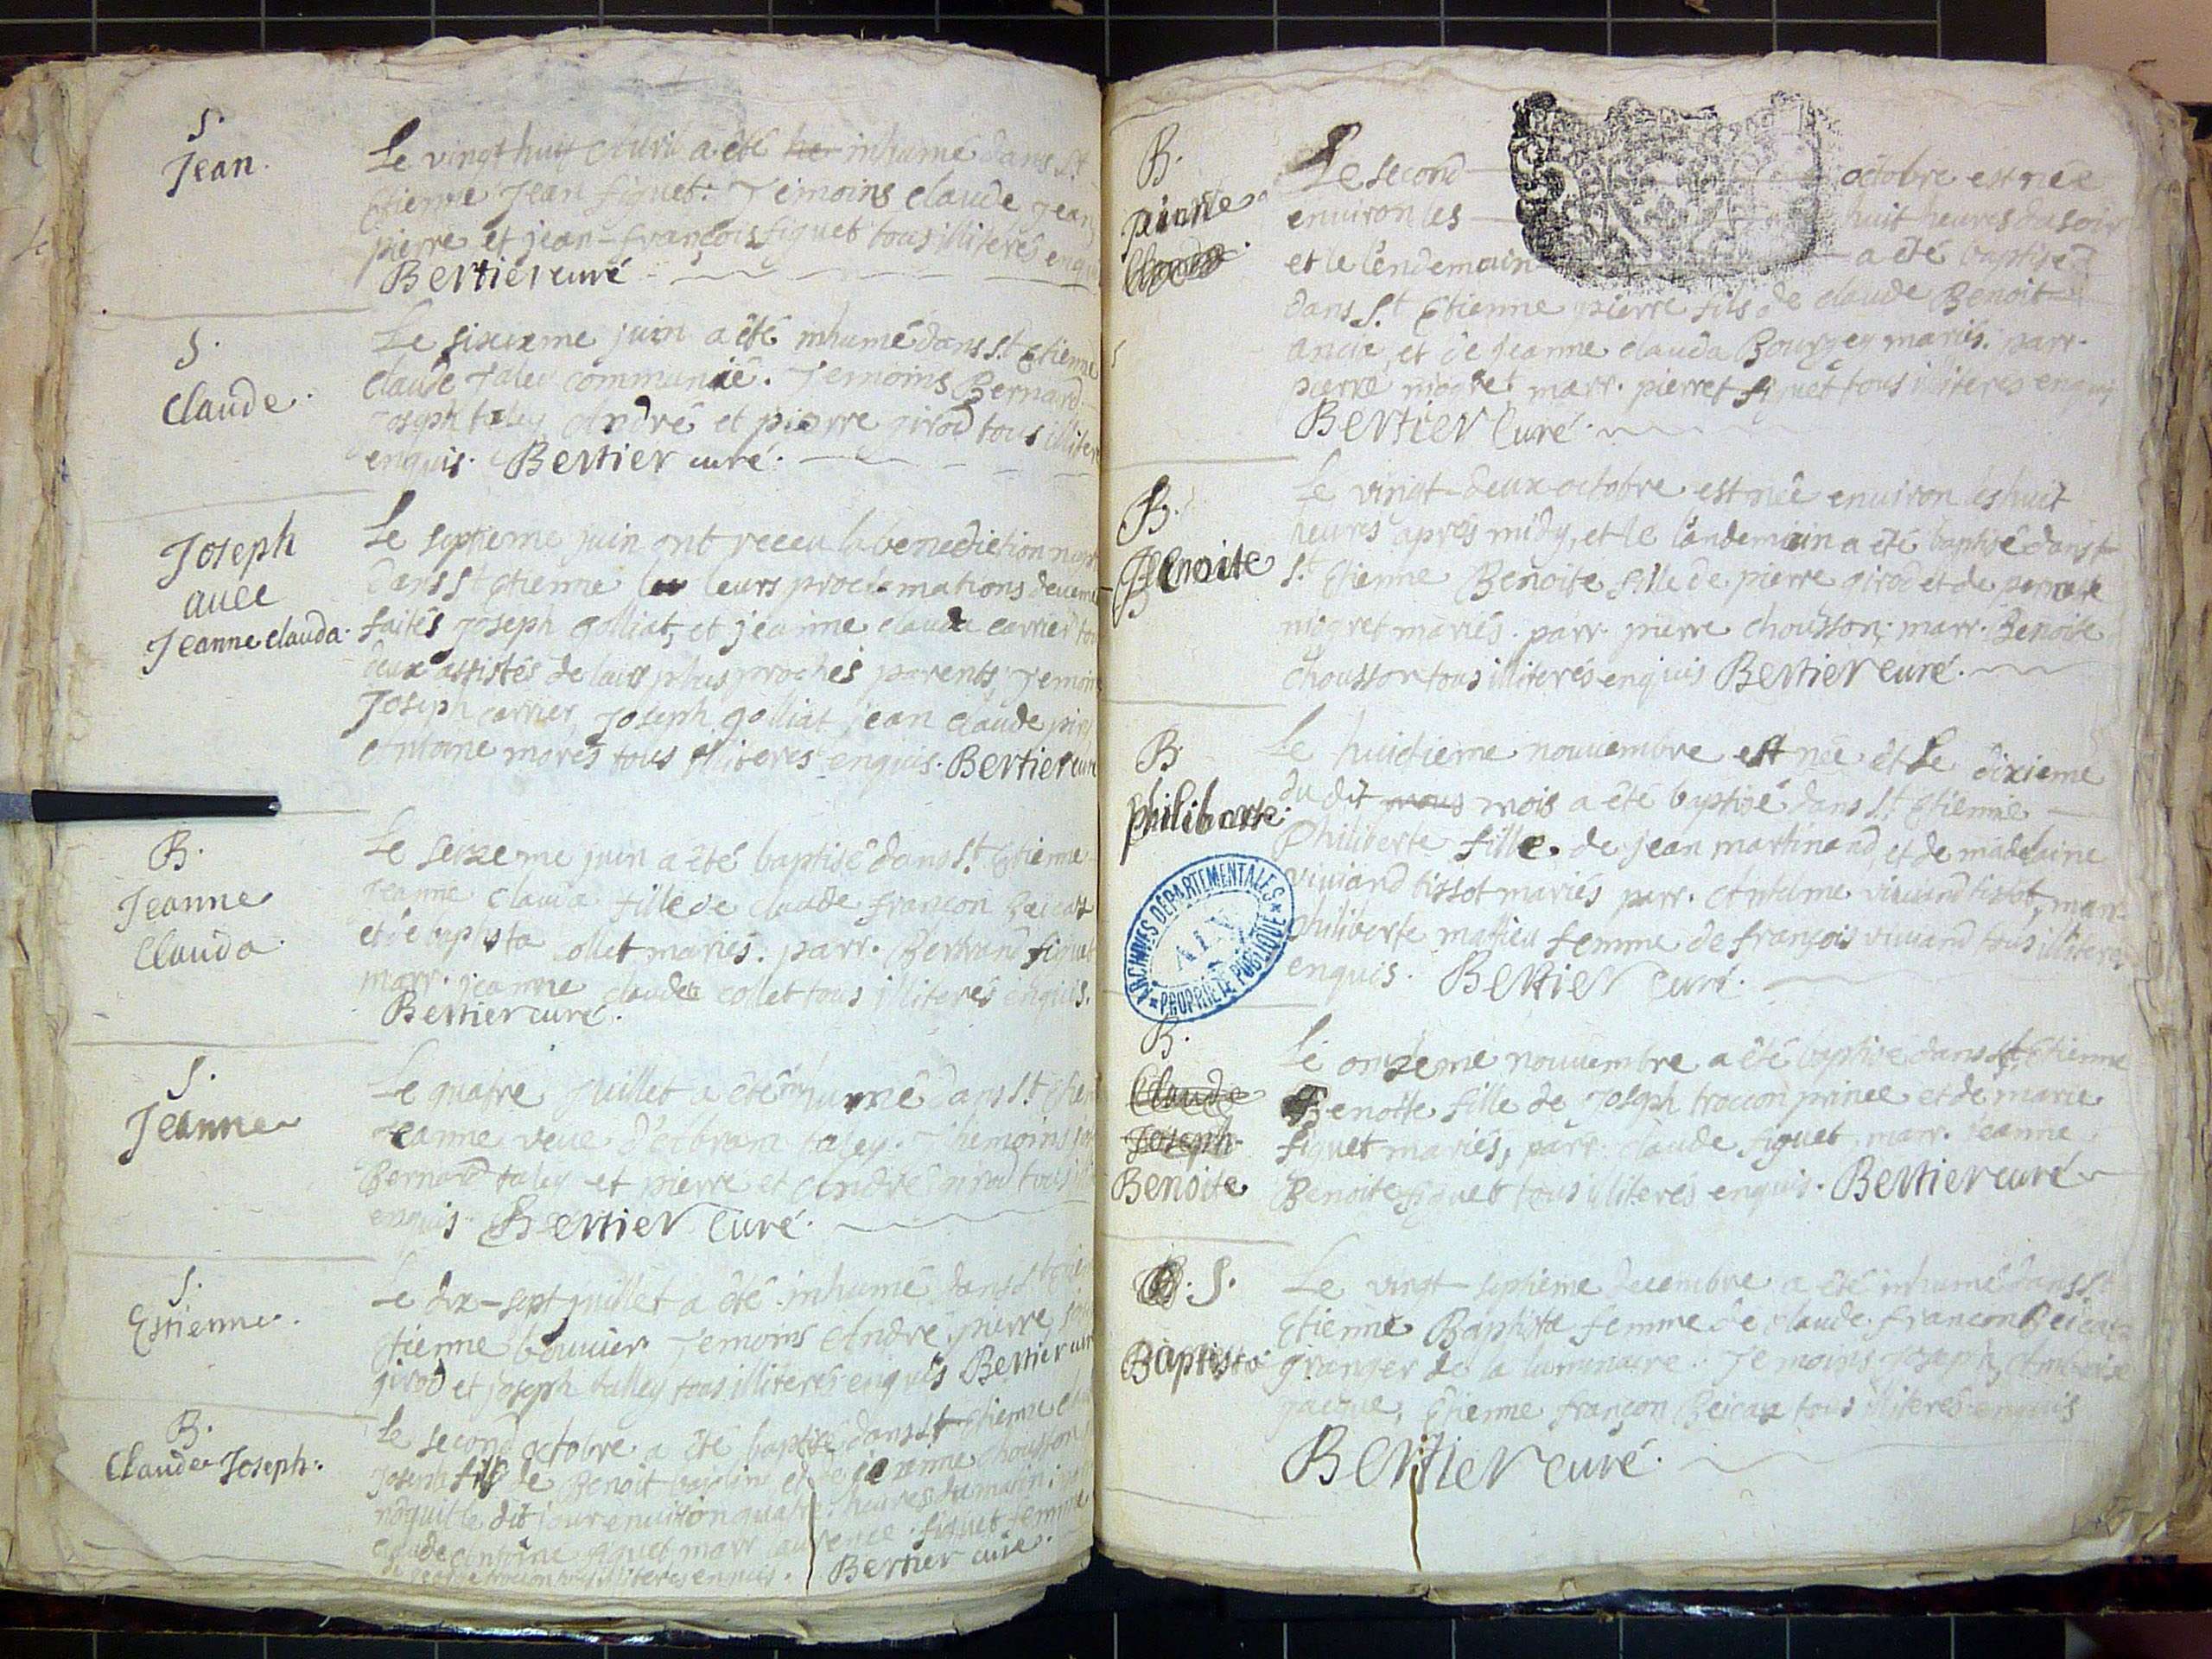 S.
Jean.
Le vingt huit avril a été inhumé dans St
Etienne Jean figuet. Temoins claude jean
pierre et jean-françois figuet tous illiterés enquis
Bertier curé
S.
Claude.
Le sixieme juin a été inhumé dans St Etienne
claude taley communié. Temoins Bernard
Joseph taley André et pierre girod tous illiter
enquis. Bertier curé.
Joseph
avec
Jeanne clauda.
Le septieme juin ont receu la benediction
dans St Etienne leurs proclamations
faites Joseph golliat, et jeanne clauda carrier
deux assistés de plus proches parents, Temoins
Joseph carrier, Joseph golliat jean claude
Antoine morés tous illiteres enquis. Bertier curé
B.
Jeanne
Clauda
Le seizeme juin a été baptisé dans St Etienne
Jeanne clauda fille de claude françon
et de baptista collet mariés. parr. Bertrand figuet
marr. jeanne claude collet tous illiterés enquis.
Bertier curé.
S.
Jeanne
Le quatre juillet a été inhumé dans St Etien
Jeanne veue taley. Themoins
Bernard taley et pierre et André girod tous
enquis. Bertier Curé.
S.
Estienne.
Le dix-sept juillet a été inhumé dans
Etienne bouvier Temoins André, pierre
girod et joseph talley tous illiterés enquis Bertier curé
B.
Claude Joseph.
Le second octobre a été baptisé dans St Etienne
Joseph fils de Benoit et de jeanne chousson
naquit le dit jour environ quatre heures du matin.
claude antoine figuet marr laurence figuet femme
tous illiteres enquis. Bertier curé.
B.
pierre
Le second octobre est née
environ les huit heures du soir
et le lendemain a été baptisé
dans St Etienne pierre fils de claude Benoit
ancié, et de jeanne clauda Bourgey mariés. parr.
pierre mogret marr. pierret figuet tous illiteres enquis
Bertier Curé.
B.
Benoite
Le vingt-deux octobre est née environ les huit
heures après midy, et le landemain a été baptisé dans
St Etienne Benoite fille de pierre girod et de pernete
mogret mariés. parr. pierre chousson, marr. Benoite
chousson tous illiterés enquis Bertier curé.
B
philiberte.
Le huictieme nouvembre est née et le dixieme
du dit mois a été baptisé dans St Etienne
Philiberte fille de jean martinand, et de madelaine
viviand tissot mariés parr. Anthelme viviand tissot, marr.
philiberte mathieu femme de françois viviand tous illiteres
enquis. Bertier Curé.
ARCHIVES DEPARTEMENTALES
AIN
PROPRIETE PUBLIQUE
B.
Claude
Joseph
Benoite
Le onzeme nouvembre a été baptisé dans St Etienne
Benoite fille de Joseph troccon prince et de marie
figuet mariés, parr. claude figuet marr. jeanne
Benoite figuet tous illiterés enquis. Bertier curé
B. S.
Baptista
Le vingt-septieme decembre a été inhumé dans St
Etienne Baptista femme de claude françon
granger de la luminaire. Temoins joseph, Ambroise
Etienne françon tous illiterés enquis
Bertier curé.